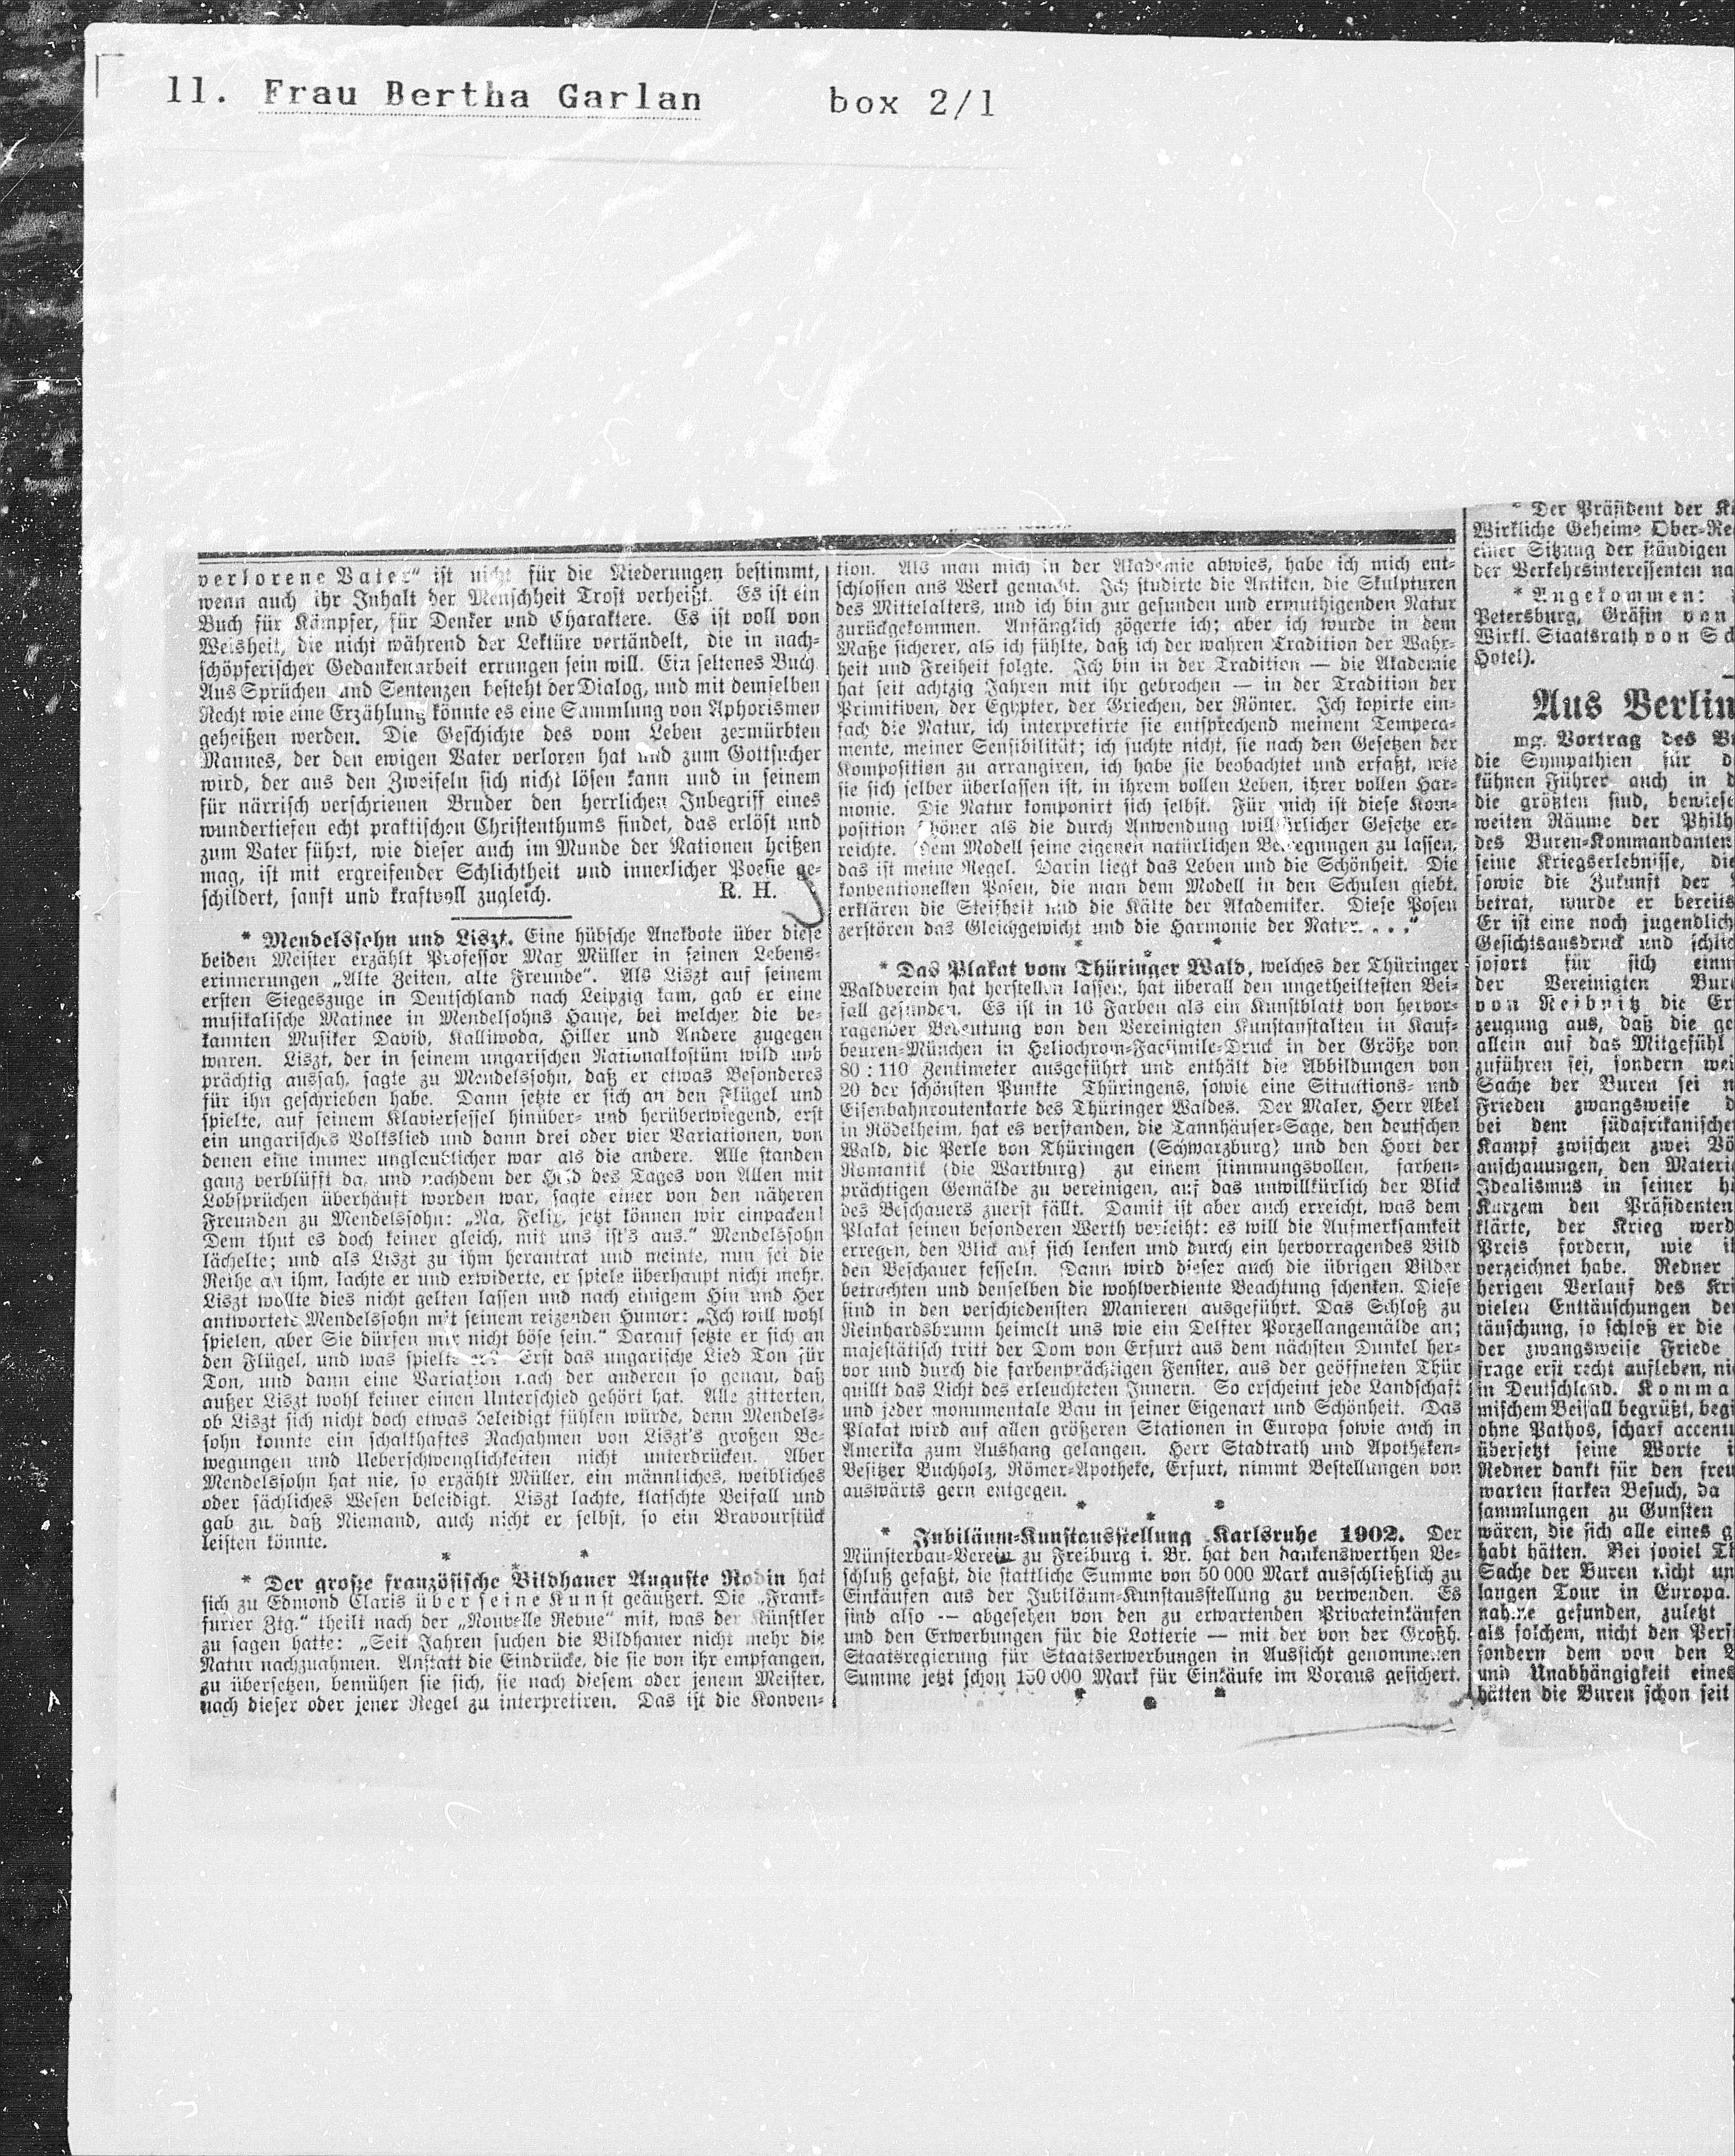 11. Frau Bertha Garlan box 2/1
verlorene Vater“ ist nicht für die Niederungen bestimmt,
wenn auch ihr Inhalt der Menschheit Trost verheißt. Es ist ein
Buch für Kämpfer, für Denker und Charaktere. Es ist voll von
Weisheit, die nicht während der Lektüre vertändelt, die in nach-
schöpferischer Gedankenarbeit errungen sein will. Ein seltenes Buch
Aus Sprüchen und Sentenzen besteht der Dialog, und mit demselben
Recht wie eine Erzählung könnte es eine Sammlung von Aphorismen
geheißen werden. Die Geschichte des vom Leben zermürbten
Mannes, der den ewigen Vater verloren hat und zum Gottsucher
wird, der aus den Zweifeln sich nicht lösen kann und in seinem
für närrisch verschrienen Bruder den herrlichen Inbegriff eines
wundertiefen echt praktischen Christenthums findet, das erlöst und
zum Vater führt, wie dieser auch im Munde der Nationen heißen
mag, ist mit ergreifender Schlichtheit und innerlicher Poesie ge-
schildert, sanft und kraftvoll zugleich. R. H.
* Mendelssohn und Liszt. Eine hübsche Anekdote über diese
beiden Meister erzählt Professor Max Müller in seinen Lebens-
erinnerungen „Alte Zeiten, alte Freunde“. Als Liszt auf seinem
ersten Siegeszuge in Deutschland nach Leipzig kam, gab er eine
musikalische Matinee in Mendelsohns Hause, bei welcher die be-
kannten Musiker David, Kalliwoda, Hiller und Andere zugegen
waren. Liszt, der in seinem ungarischen Nationalkostüm wild und
prächtig aussah, sagte zu Mendelssohn, daß er etwas Besonderes
für ihn geschrieben habe. Dann setzte er sich an den Flügel und
spielte, auf seinem Klaviersessel hinüber- und herüberwiegend, erst
ein ungarisches Volkslied und dann drei oder vier Variationen, von
denen eine immer unglaublicher war als die andere. Alle standen
ganz verblüfft da, und nachdem der Held des Tages von Allen mit
Lobsprüchen überhäuft worden war, sagte einer von den näheren
Freunden zu Mendelssohn: „Na, Felix, jetzt können wir einpacken!
Dem thut es doch keiner gleich, mit uns ist's aus.“ Mendelssohn
lächelte; und als Liszt zu ihm herantrat und meinte, nun sei die
Reihe an ihm, lachte er und erwiderte, er spiele überhaupt nicht mehr.
Liszt wollte dies nicht gelten lassen und nach einigem Hin und Her
antwortete Mendelssohn mit seinem reizenden Humor: „Ich will wohl
spielen, aber Sie dürfen mir nicht böse sein.“ Darauf setzte er sich an
den Flügel, und was spielte er? Erst das ungarische Lied Ton für
Ton, und dann eine Variation nach der anderen so genau, daß
außer Liszt wohl keiner einen Unterschied gehört hat. Alle zitterten,
ob Liszt sich nicht doch etwas beleidigt fühlen würde, denn Mendels-
sohn konnte ein schalkhaftes Nachahmen von Liszt's großen Be-
wegungen und Ueberschwenglichkeiten nicht unterdrücken. Aber
Mendelssohn hat nie, so erzählt Müller, ein männliches, weibliches
oder sächliches Wesen beleidigt. Liszt lachte, klatschte Beifall und
gab zu, daß Niemand, auch nicht er selbst, so ein Bravourstück
leisten könnte.
* * *
* Der große französische Bildhauer Auguste Rodin hat
sich zu Edmond Claris über seine Kunst geäußert. Die „Frank-
furter Ztg.“ theilt nach der „Nouvelle Revue“ mit, was der Künstler
zu sagen hatte: „Seit Jahren suchen die Bildhauer nicht mehr die
Natur nachzuahmen. Anstatt die Eindrücke, die sie von ihr empfangen,
zu übersetzen, bemühen sie sich, sie nach diesem oder jenem Meister,
nach dieser oder jener Regel zu interpretiren. Das ist die Konven-
tion. Als man mich in der Akademie abwies, habe ich mich ent-
schlossen ans Werk gemacht. Ich studirte die Antiken, die Skulpturen
des Mittelalters, und ich bin zur gesunden und ermuthigenden Natur
zurückgekommen. Anfänglich zögerte ich; aber ich wurde in dem
Maße sicherer, als ich fühlte, daß ich der wahren Tradition der Wahr-
heit und Freiheit folgte. Ich bin in der Tradition — die Akademie
hat seit achtzig Jahren mit ihr gebrochen — in der Tradition der
Primitiven, der Egypter, der Griechen, der Römer. Ich kopirte ein-
fach die Natur, ich interpretirte sie entsprechend meinem Tempera-
mente, meiner Sensibilität; ich suchte nicht, sie nach den Gesetzen der
Komposition zu arrangiren, ich habe sie beobachtet und erfaßt, wie
sie sich selber überlassen ist, in ihrem vollen Leben, ihrer vollen Har-
monie. Die Natur komponirt sich selbst. Für mich ist diese Kom-
position schöner als die durch Anwendung willkürlicher Gesetze er-
reichte. Dem Modell seine eigenen natürlichen Bewegungen zu lassen,
das ist meine Regel. Darin liegt das Leben und die Schönheit. Die
konventionellen Posen, die man dem Modell in den Schulen giebt,
erklären die Steifheit und die Kälte der Akademiker. Diese Posen
zerstören das Gleichgewicht und die Harmonie der Natur. . . .“
* * *
* Das Plakat vom Thüringer Wald, welches der Thüringer
Waldverein hat herstellen lassen, hat überall den ungetheiltesten Bei-
fall gefunden. Es ist in 16 Farben als ein Kunstblatt von hervor-
ragender Bedeutung von den Vereinigten Kunstanstalten in Kauf-
beuren-München in Heliochrom-Facsimile-Druck in der Größe von
80 : 110 Zentimeter ausgeführt und enthält die Abbildungen von
20 der schönsten Punkte Thüringens, sowie eine Situations- und
Eisenbahnroutenkarte des Thüringer Waldes. Der Maler, Herr Abel
in Rödelheim, hat es verstanden, die Tannhäuser-Sage, den deutschen
Wald, die Perle von Thüringen (Schwarzburg) und den Hort der
Romantik (die Wartburg) zu einem stimmungsvollen, farben-
prächtigen Gemälde zu vereinigen, auf das unwillkürlich der Blick
des Beschauers zuerst fällt. Damit ist aber auch erreicht, was dem
Plakat seinen besonderen Werth verleiht: es will die Aufmerksamkeit
erregen, den Blick auf sich lenken und durch ein hervorragendes Bild
den Beschauer fesseln. Dann wird dieser auch die übrigen Bilder
betrachten und denselben die wohlverdiente Beachtung schenken. Diese
sind in den verschiedensten Manieren ausgeführt. Das Schloß zu
Reinhardsbrunn heimelt uns wie ein Delfter Porzellangemälde an;
majestätisch tritt der Dom von Erfurt aus dem nächsten Dunkel her-
vor und durch die farbenprächtigen Fenster, aus der geöffneten Thür
quillt das Licht des erleuchteten Innern. So erscheint jede Landschaft
und jeder monumentale Bau in seiner Eigenart und Schönheit. Das
Plakat wird auf allen größeren Stationen in Europa sowie auch in
Amerika zum Aushang gelangen. Herr Stadtrath und Apotheken-
Besitzer Buchholz, Römer-Apotheke, Erfurt, nimmt Bestellungen von
auswärts gern entgegen.
* * *
* Jubiläum-Kunstausstellung Karlsruhe 1902. Der
Münsterbau-Verein zu Freiburg i. Br. hat den dankenswerthen Be-
schluß gefaßt, die stattliche Summe von 50 000 Mark ausschließlich zu
Einkäufen aus der Jubiläum-Kunstausstellung zu verwenden. Es
sind also — abgesehen von den zu erwartenden Privateinkäufen
und den Erwerbungen für die Lotterie — mit der von der Großh.
Staatsregierung für Staatserwerbungen in Aussicht genommenen
Summe jetzt schon 150 000 Mark für Einkäufe im Voraus gesichert.
* * *
* Der Präsident der
Wirkliche Geheime Ober-Re
einer Sitzung der ständigen
der Verkehrsinteressenten na
* Angekommen:
Petersburg, Gräfin von
Wirkl. Staatsrath von Sc
Hotel).
Aus Berlin
mg. Vortrag des
die Sympathien für d
kühnen Führer auch in d
die größten sind, bewiese
weiten Räume der Philh
des Buren-Kommandanten
seine Kriegserlebnisse, die
sowie die Zukunft der
betrat, wurde er bereits
Er ist eine noch jugendlich
Gesichtsausdruck und schlic
sofort für sich einn
der Vereinigten Bure
von Reibnitz die Er
zeugung aus, daß die ge
allein auf das Mitgefühl
zuführen sei, sondern wei
Sache der Buren sei n
Frieden zwangsweise d
bei dem südafrikanische
Kampf zwischen zwei Vö
anschauungen, den Materia
Idealismus in seiner hö
Kurzem den Präsidenten
klärte, der Krieg werd
Preis fordern, wie ih
verzeichnet habe. Redner
herigen Verlauf des Kri
vielen Enttäuschungen der
täuschung, so schloß er die
der zwangsweise Friede
frage erst recht aufleben, nic
in Deutschland. Komma
mischem Beifall begrüßt, begi
ohne Pathos, scharf accentu
übersetzt seine Worte i
Redner dankt für den freu
warten starken Besuch, da
sammlungen zu Gunsten
wären, die sich alle eines g
habt hätten. Bei soviel Th
Sache der Buren nicht un
langen Tour in Europa.
nahme gefunden, zuletzt
als solchem, nicht den Pers
sondern dem von den
und Unabhängigkeit eines
hätten die Buren schon seit